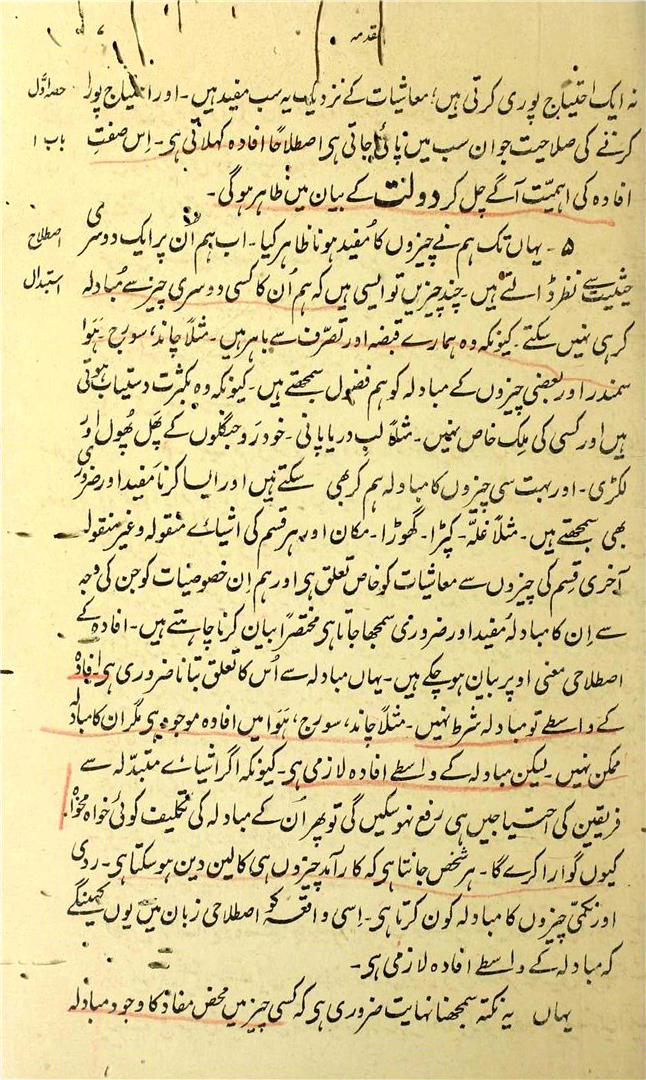 مقدمہ
نہ ایک احتیاج پوری کرتی ہیں؛ معاشیات کے نزدیک یہ سب مفید ہیں۔ اور احتیاج پورا
حصہ اوّل
کرنے کی صلاحیت جو ان سب میں پائی جاتی ہی اصطلاحًا افادہ کہلاتی ہی۔ اِس صفتِ
باب ۱
افادہ کی اہمیّت آگے چل کر دولت کے بیان میں ظاہر ہوگی۔
۵۔ یہاں تک ہم نے چیزوں کا مفید ہونا ظاہر کیا۔ اب ہم اُن پر ایک دوسری
اصطلاح
حیثیت سے نظر ڈالتے ہیں۔ چند چیزیں تو ایسی ہیں کہ ہم اُن کا کسی دوسری چیز سے مُبادلہ
استبدال
کر ہی نہیں سکتے۔ کیونکہ وہ ہمارے قبضہ اور تصرّف سے باہر ہیں۔ مثلاً چاند، سورج، ہَوا
سمندر اور بعضی چیزوں کے مبادلہ کو ہم فضول سمجھتے ہیں۔ کیونکہ وہ بکثرت دستیاب ہوتی
ہیں اور کسی کی مِلک خاص نہیں۔ مثلاً لبِ دریا پانی۔ خودرَو جنگلوں کے پھَل پھُول اور
لکڑی۔ اور بہت سی چیزوں کا مبادلہ ہم کر بھی سکتے ہیں اور ایسا کرنا مفید اور ضروری
بھی سمجھتے ہیں۔ مثلاً غلّہ۔ کپڑا۔ گھوڑا۔ مکان اور ہر قسم کی اشیائے منقولہ و غیر منقولہ
آخری قِسم کی چیزوں سے معاشیات کو خاص تعلق ہی اور ہم اِن خصوصیات کو جن کی وجہ
سے اِن کا مبادلہ مُفید اور ضروری سمجھا جاتا ہی مختصرًا بیان کرنا چاہتے ہیں۔ افادہ کے
اصطلاحی معنی اوپر بیان ہو چکے ہیں۔ یہاں مبادلہ سے اُس کا تعلق بتانا ضروری ہی۔ افادہ
کے واسطے تو مبادلہ شرط نہیں۔ مثلاً چاند، سورج، ہَوا میں افادہ موجود ہی مگر ان کا مبادلہ
ممکن نہیں۔ لیکن مبادلہ کے واسطے افادہ لازمی ہی۔ کیونکہ اگر اشیائے متبدّلہ سے
فریقین کی احتیاجیں ہی رفع نہوسکیں گی تو پھر اُن کے مبادلہ کی تکلیف کوئی خواہ مخواہ
کیوں گوارا کرے گا۔ ہر شخص جانتا ہی کہ کارآمد چیزوں ہی کا لین دین ہوسکتا ہی۔ ردّی
اور نکمّی چیزوں کا مبادلہ کون کرتا ہی۔ اِسی واقعہ کو اصطلاحی زبان میں یوں کہینگے
کہ مبادلہ کے واسطے افادہ لازمی ہی۔
یہاں یہ نکتہ سمجھنا نہایت ضروری ہی کہ کسی چیز میں محض مفاد کا وجود مبادلہ